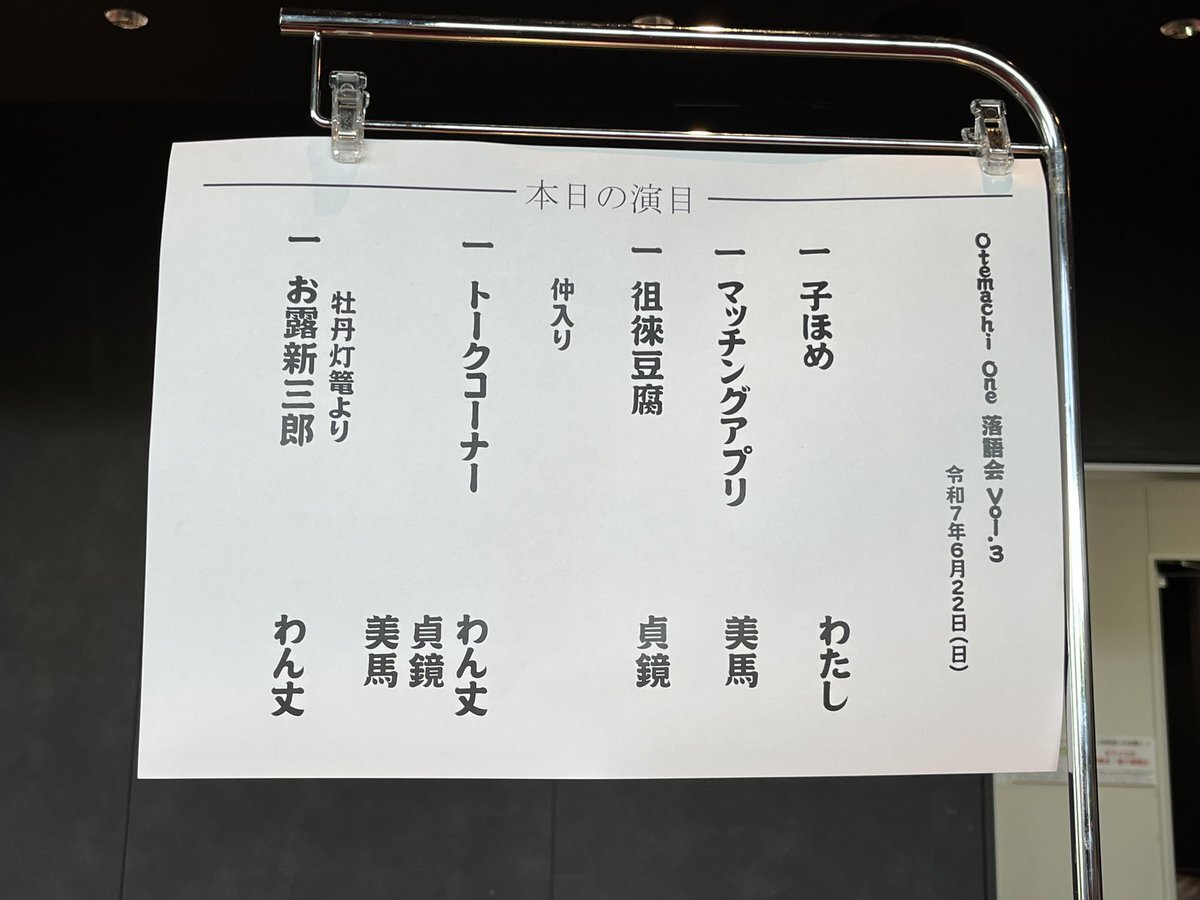 本日の演目
Otemachi One 落語会 Vol.3
令和7年6月22日(日)
一 子ほめ わたし
一 マッチングアプリ 美馬
一 徂徠豆腐 貞鏡
仲入り
一 トークコーナー わん丈
貞鏡
美馬
牡丹灯篭より
一 お露新三郎 わん丈